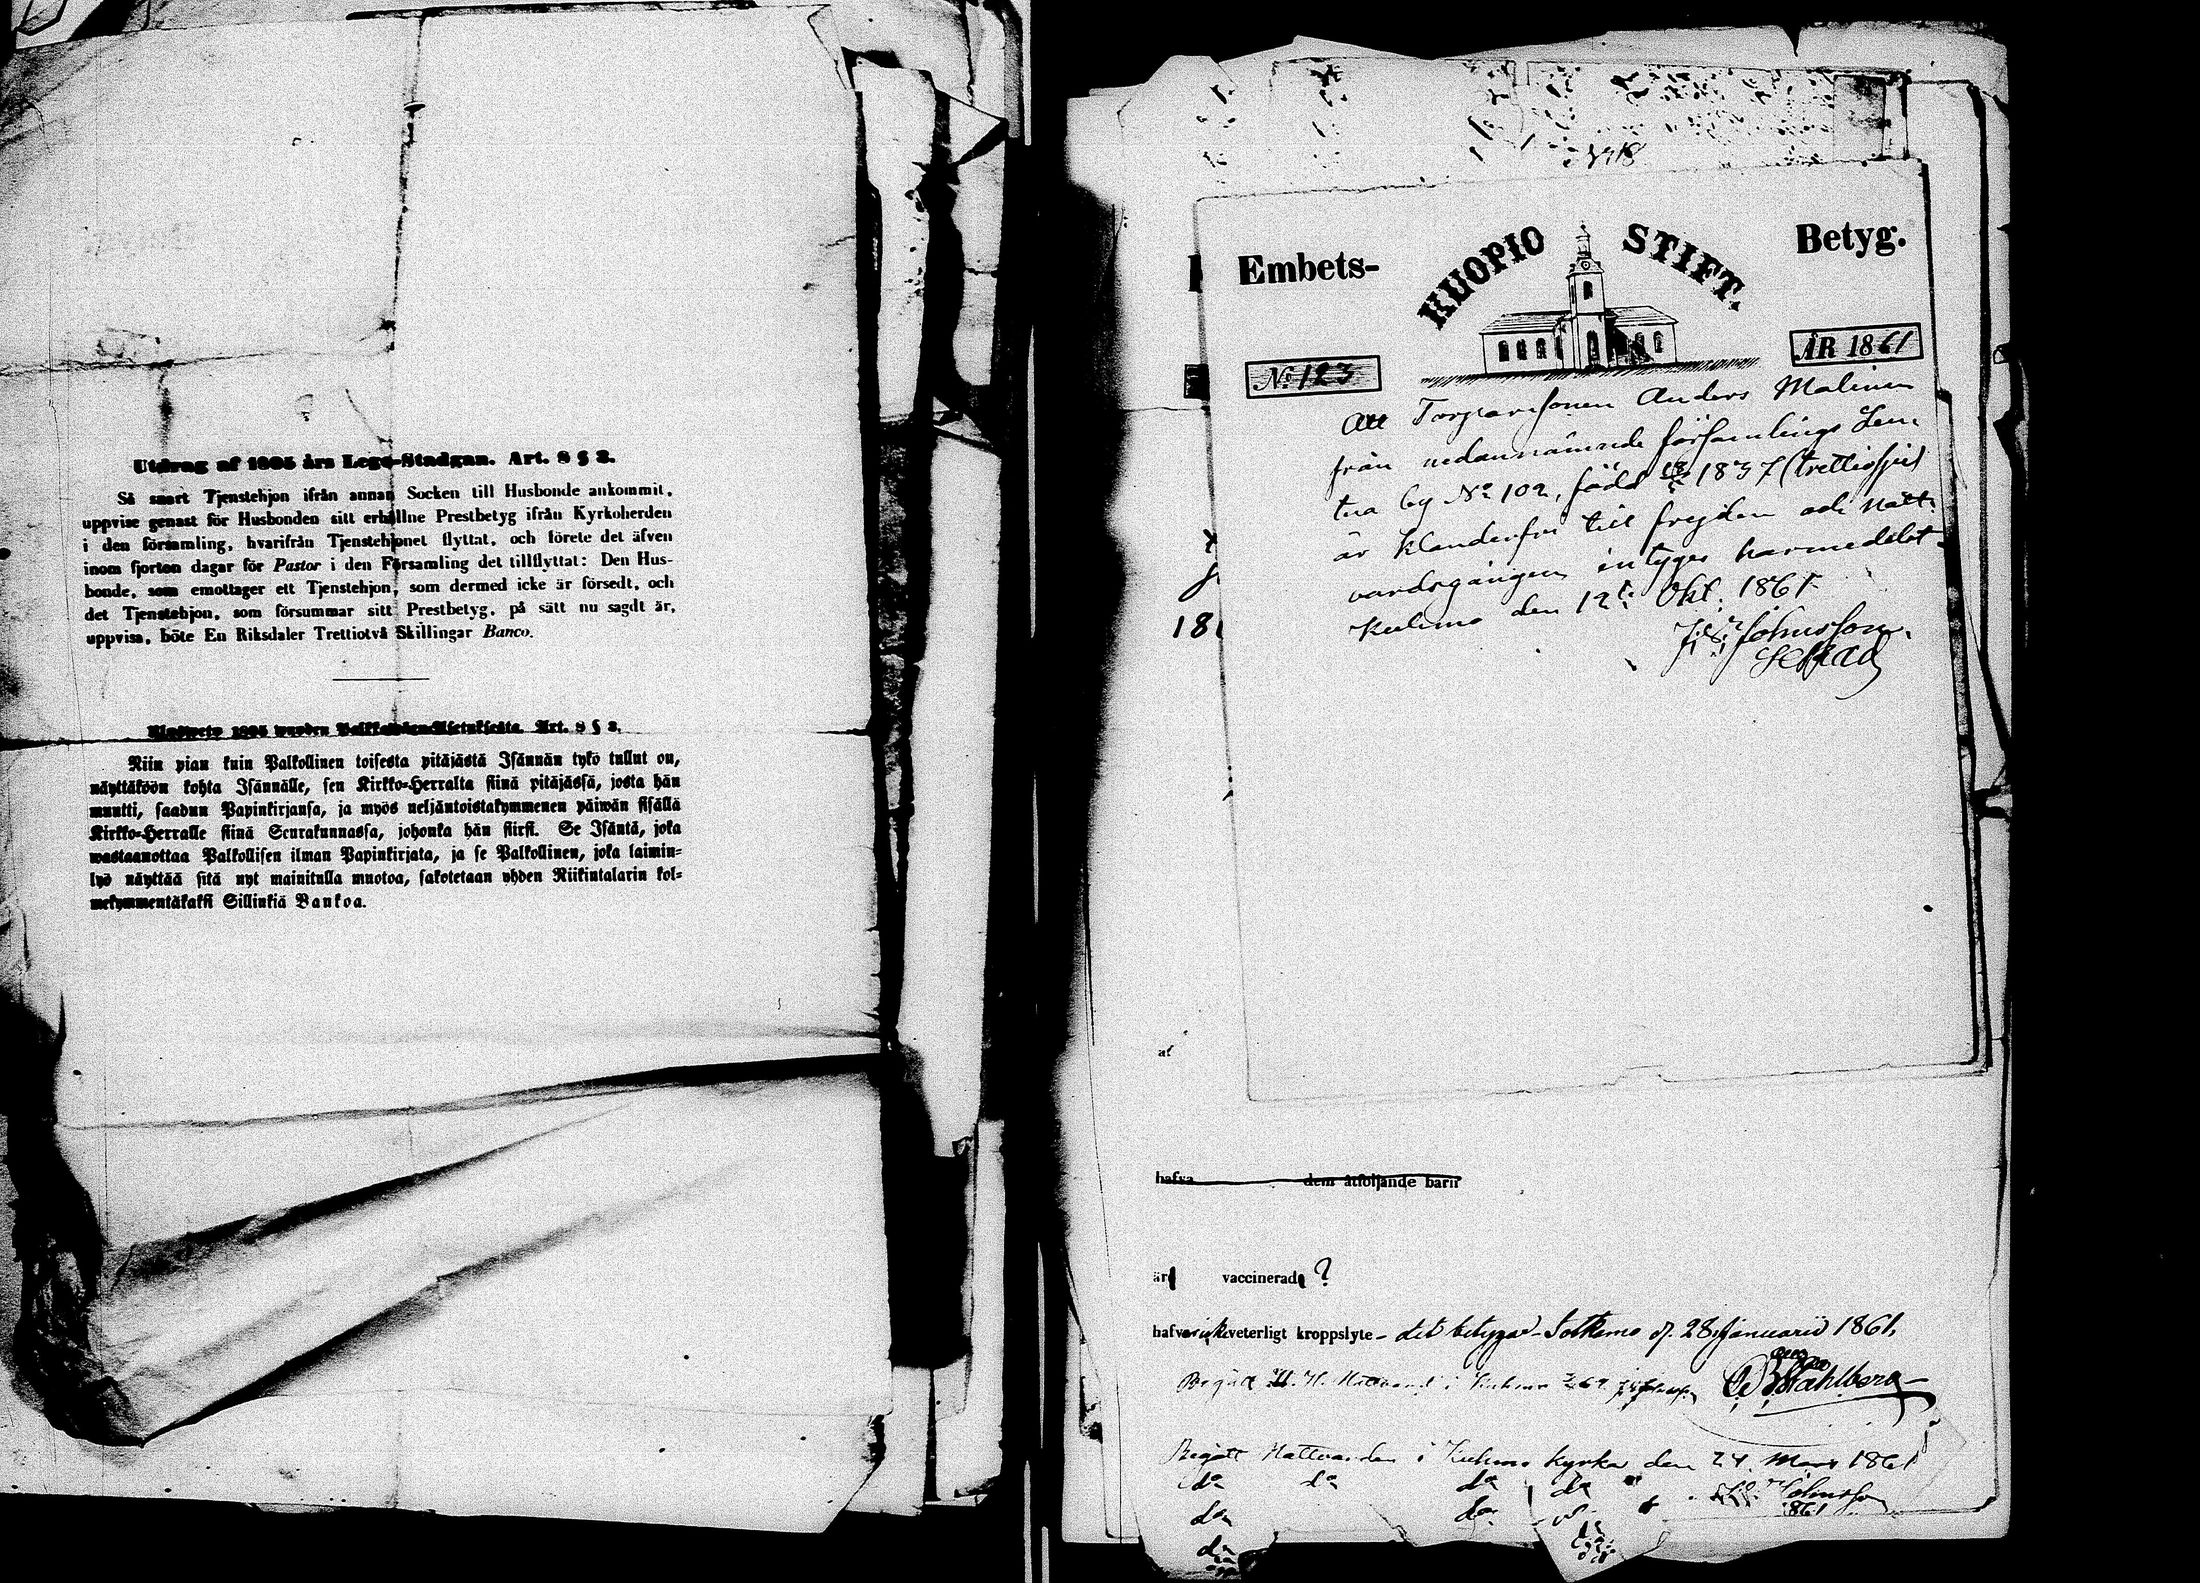 Utdrag af 1805 års Lego-Stadgan. Art. 8 § 2.
Så snart Tjenstehjon ifrån annan Socken till Husbonde ankommit,
uppvise genast för Husbonden sitt erhållne Prestbetyg ifrån Kyrkoherden
i den församling, hvarifrån Tjenstehjonet flyttat, och förete det äfven
inom fjorton dagar för Pastor i den Församling det tillflyttat: Den Hus-
bonde, som emottager ett Tjenstehjon, som dermed icke är försedt, och
det Tjenstehjon, som försummar sitt Prestbetyg, på sätt nu sagdt är,
uppvisa, böte En Riksdaler Trettiotvå Skillingar Banco.
1805 wuoden Art. 8 § 2.
Niin pian kuin Palkollinen toisesta pitäjästä Isännän tykö tullut on,
näyttäköön kohta Isännälle, sen Kirkko-Herralta siinä pitäjässä, josta hän
muutti, saadun Papinkirjansa, ja myös neljäntoistakymmenen päiwän sisällä
Kirkko-Herralle siinä Seurakunnassa, johonka hän siirsi. Se Isäntä, joka
wastaanottaa Palkollisen ilman Papinkirjata, ja se Palkollinen, joka laimin-
lyö näyttää sitä nyt mainitulla muotoa, sakotetaan yhden Riikintalarin kol-
mekymmentäkaksi Sillinkiä Bankoa.
Embets- KUOPIO STIFT. Betyg.
No 123
ÅR 1861
Att Torparesonen Anders Malinen
från nedannämnde församlings Len-
tua by No 102, född 1837 (trettiosju)
är klanderfri till frejden och natt-
vardsgången intygas härmedelst.
Kuhmo den 12te Okt. 1861.
Johnsson.
181
af
hafva dem åtföljande barn
är vaccinerad ?
hafva icke veterligt kroppslyte - det betygar - Sotkamo d. 28 Januarii 1861.
Begått H. H. Nattvard i Kuhmo
Wahlberg
Begått Nattvarden i Kuhmo kyrka den 24 Mars 1861
do do do do Johnsson
do do 1861
do